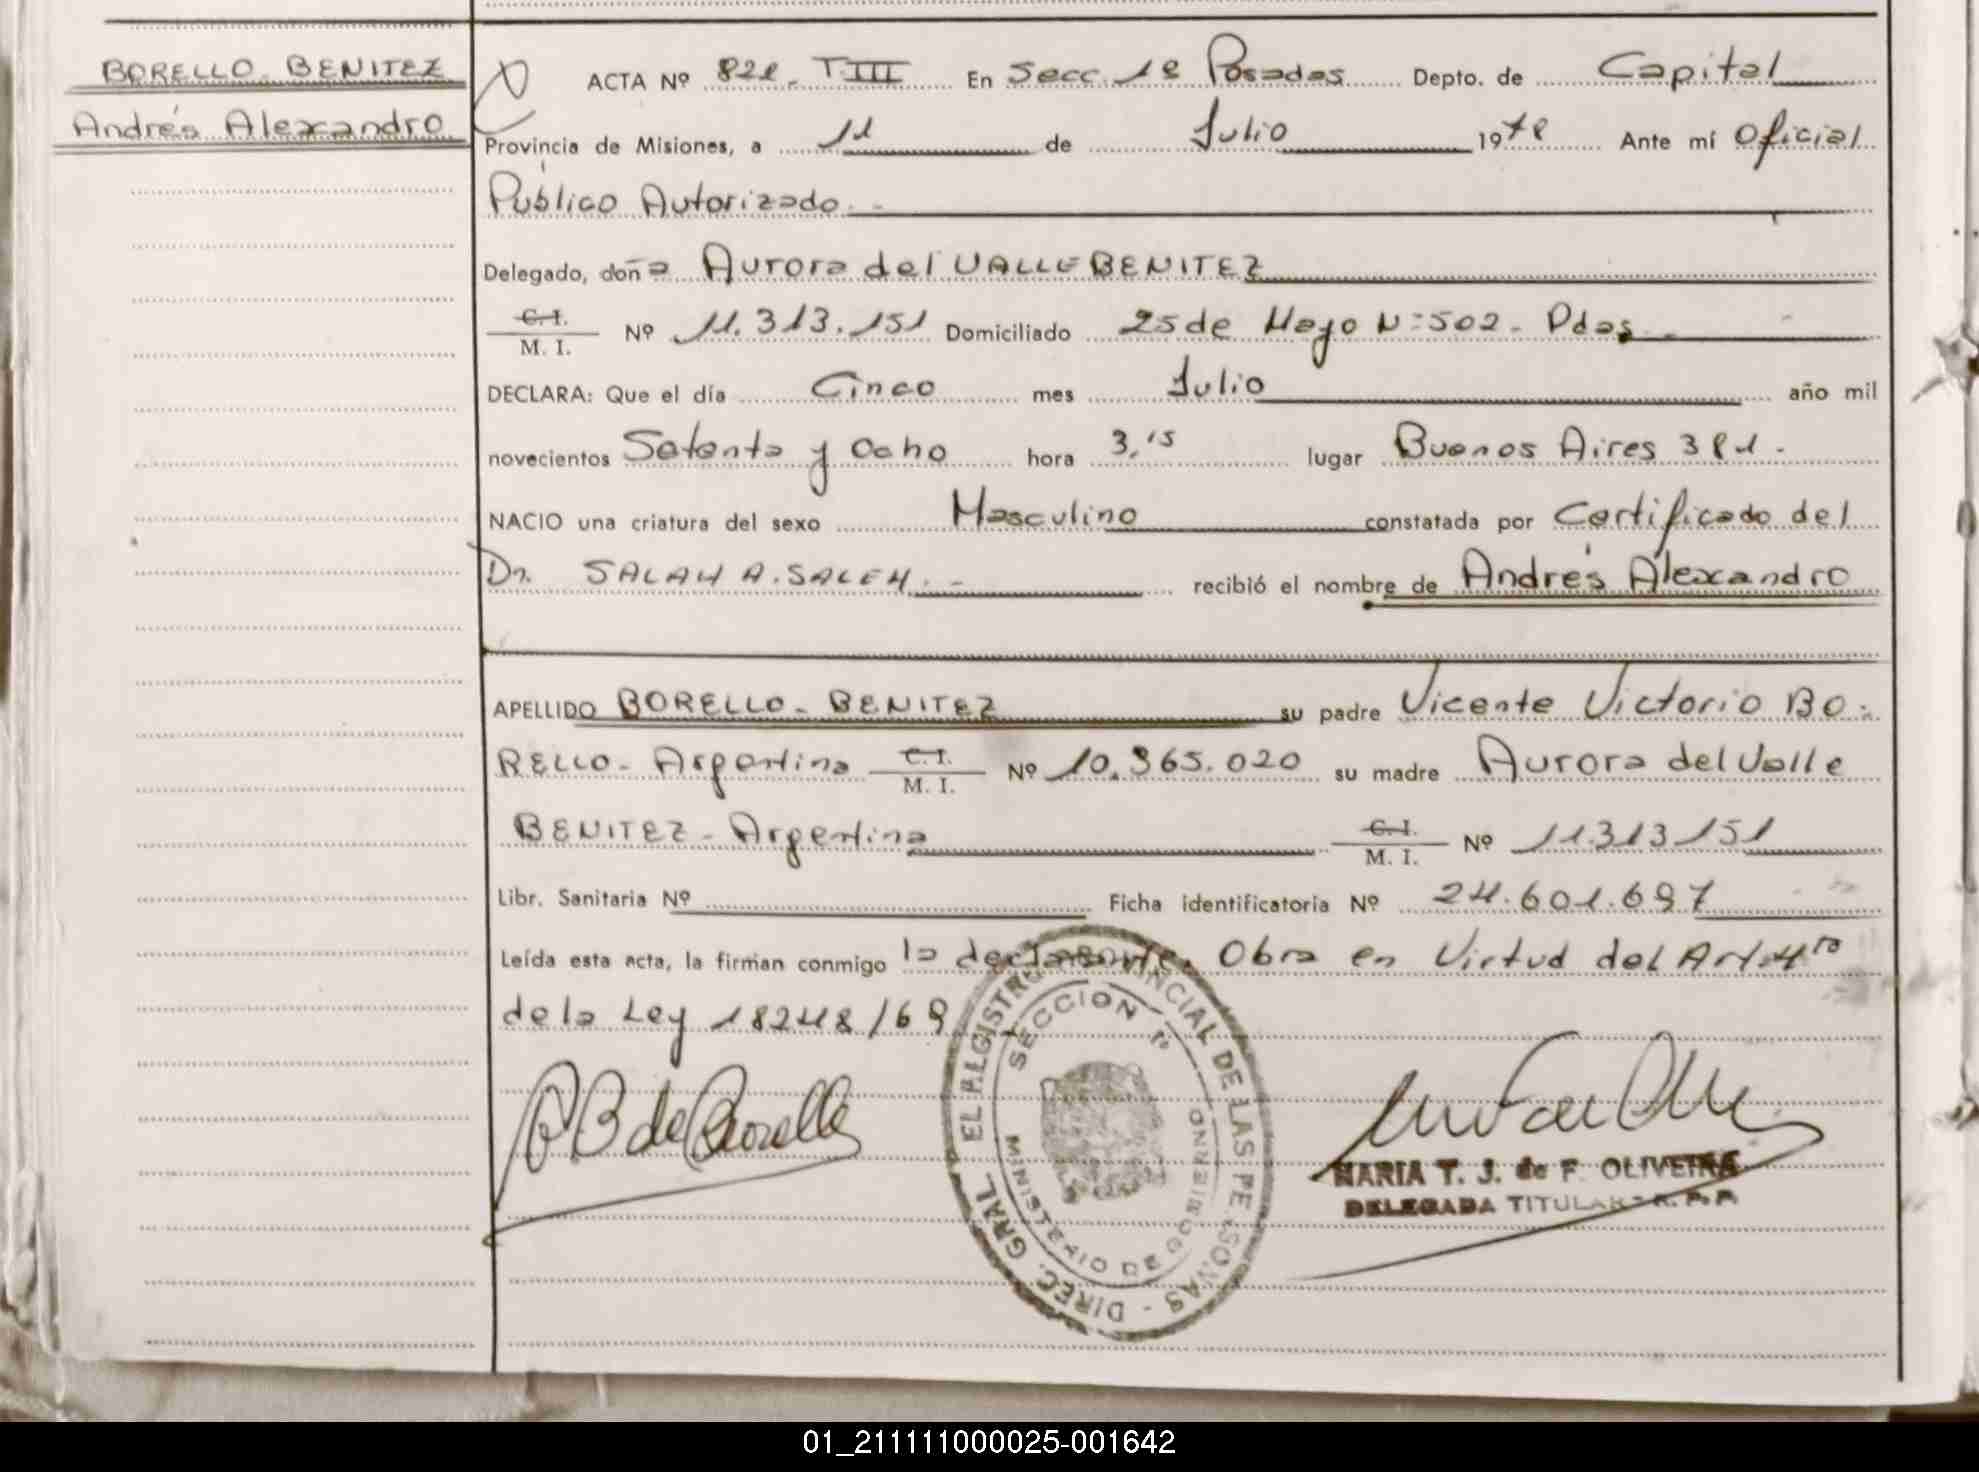 BORELLO - BENITEZ
Andrés Alexandro
ACTA Nº 821 - T III En Secc. 1ª Posadas Depto. de Capital
Provincia de Misiones, a 11 de Julio 1978 Ante mí Oficial
Público Autorizado. -
Delegado, doña Aurora del VALLE BENITEZ
C. I.
M. I.
Nº 11.313.151 Domiciliado 25 de Mayo Nº 502 - Pdas -
DECLARA: Que el día Cinco mes Julio año mil
novecientos Setenta y Ocho hora 3,15 lugar Buenos Aires 381 -
NACIO una criatura del sexo Masculino constatada por Certificado del
Dr. SALAH A. SALEH. - recibió el nombre de Andrés Alexandro
APELLIDO BORELLO - BENITEZ su padre Vicente Victorio BO-
RELLO - Argentina C. I. M. I. Nº 10.365.020 su madre Aurora del Valle
BENITEZ - Argentina C. I. M. I. Nº 11.313.151
Libr. Sanitaria Nº Ficha identificatoria Nº 24.601.697
Leída esta acta, la firman conmigo la declarante. Obra en Virtud del Art. 4to
de la Ley 18248/69
A B de Borello
DIREC. GRAL. DEL REGISTRO PROVINCIAL DE LAS PERSONAS -
SECCION 1º
MINISTERIO DE GOBIERNO
MARIA T. J. de F. OLIVEIRA
DELEGADA TITULAR - R. P. P.
01_211111000025-001642